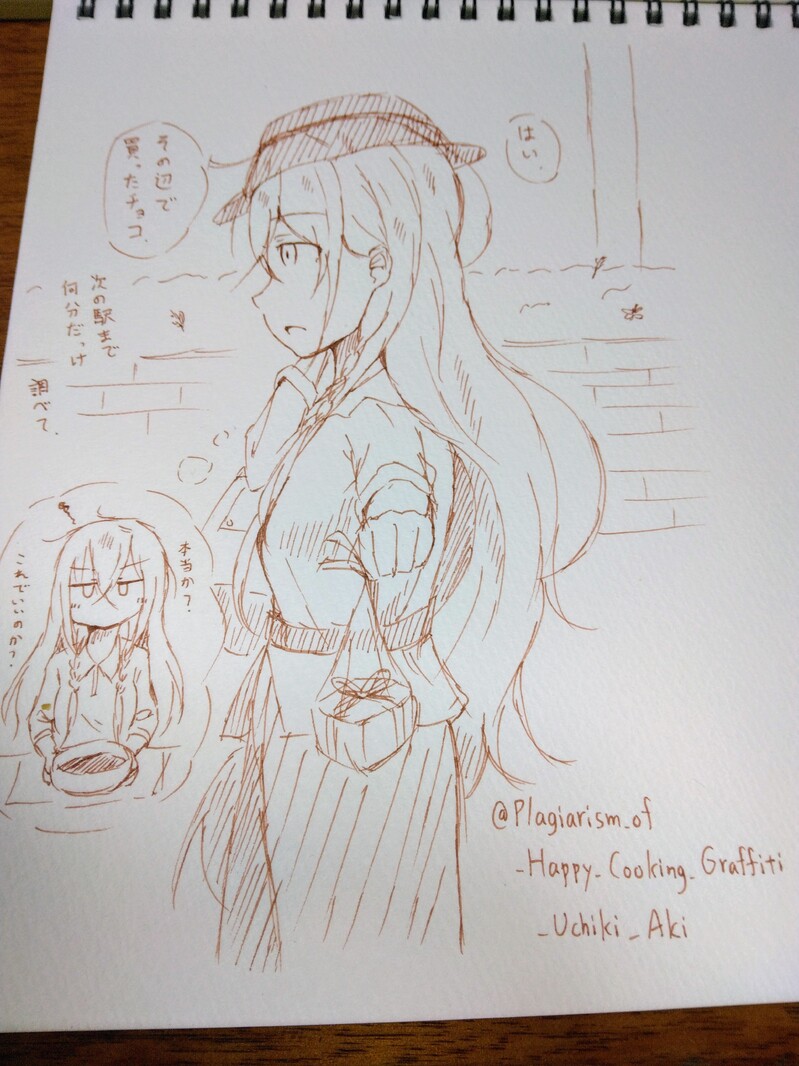 はい.
その辺で
買ったチョコ.
次の駅まで
何分だっけ
調べて.
本当か?
これでいいのか?
@Plagiarism_of
_Happy_Cooking_Graffiti
_Uchiki_Aki